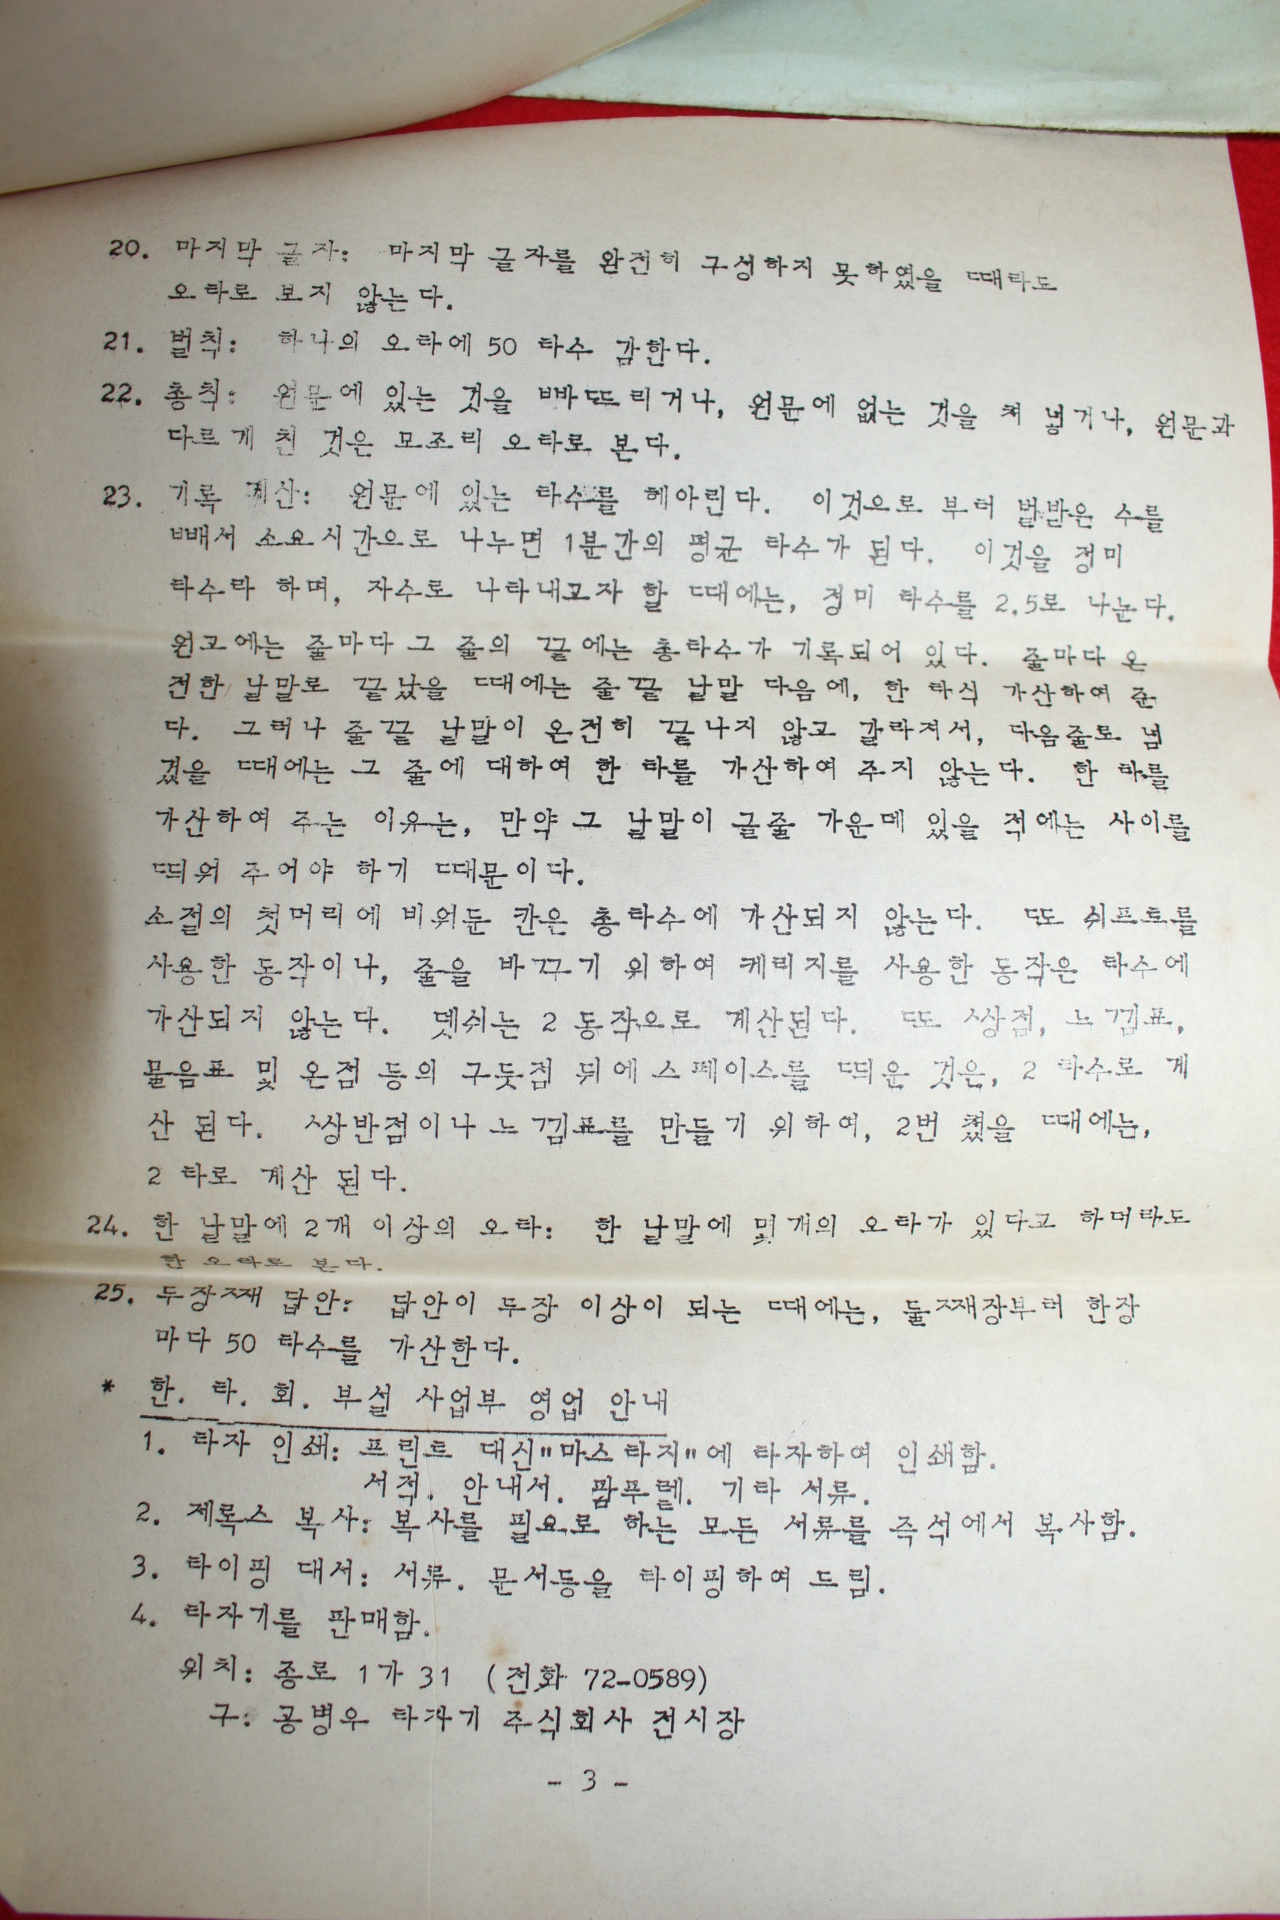 20. 마지막 글자: 마지막 글자를 완전히 구성하지 못하였을 때라도
오타로 보지 않는다.
21. 벌칙: 하나의 오타에 50 타수 감한다.
22. 총칙: 원문에 있는 것을 빠뜨리거나, 원문에 없는 것을 쳐 넣거나, 원문과
다르게 친 것은 모조리 오타로 본다.
23. 기록 계산: 원문에 있는 타수를 헤아린다. 이것으로 부터 벌받은 수를
빼서 소요시간으로 나누면 1분간의 평균 타수가 된다. 이것을 정미
타수라 하며, 자수로 나타내고자 할 때에는, 정미 타수를 2.5로 나눈다.
원고에는 줄마다 그 줄의 끝에는 총타수가 기록되어 있다. 줄마다 온
전한 낱말로 끝났을 때에는 줄끝 낱말 다음에, 한 타식 가산하여 준
다. 그러나 줄끝 낱말이 온전히 끝나지 않고 갈라져서, 다음줄로 넘
겼을 때에는 그 줄에 대하여 한 타를 가산하여 주지 않는다. 한 타를
가산하여 주는 이유는, 만약 그 낱말이 글줄 가운데 있을 적에는 사이를
띄워 주어야 하기 때문이다.
소절의 첫머리에 비워둔 칸은 총타수에 가산되지 않는다. 또 쉬프트를
사용한 동작이나, 줄을 바꾸기 위하여 케리지를 사용한 동작은 타수에
가산되지 않는다. 뎃쉬는 2 동작으로 계산된다. 또 쌍점, 느낌표,
물음표 및 온점 등의 구둣점 뒤에 스페이스를 띄운 것은, 2 타수로 계
산 된다. 쌍반점이나 느낌표를 만들기 위하여, 2번 쳤을 때에는,
2 타로 계산 된다.
24. 한 낱말에 2개 이상의 오타: 한 낱말에 몇개의 오타가 있다고 하더라도
한 오타로 본다.
25. 두장째 답안: 답안이 두장 이상이 되는 때에는, 둘째장부터 한장
마다 50 타수를 가산한다.
* 한. 타. 회. 부설 사업부 영업 안내
1. 타자 인쇄: 프린트 대신"마스타지"에 타자하여 인쇄함.
서적. 안내서. 팜푸렡. 기타 서류.
2. 제록스 복사: 복사를 필요로 하는 모든 서류를 즉석에서 복사함.
3. 타이핑 대서: 서류. 문서등을 타이핑하여 드림.
4. 타자기를 판매함.
위치: 종로 1가 31 (전화 72-0589)
구: 공병우 타자기 주식회사 전시장
- 3 -